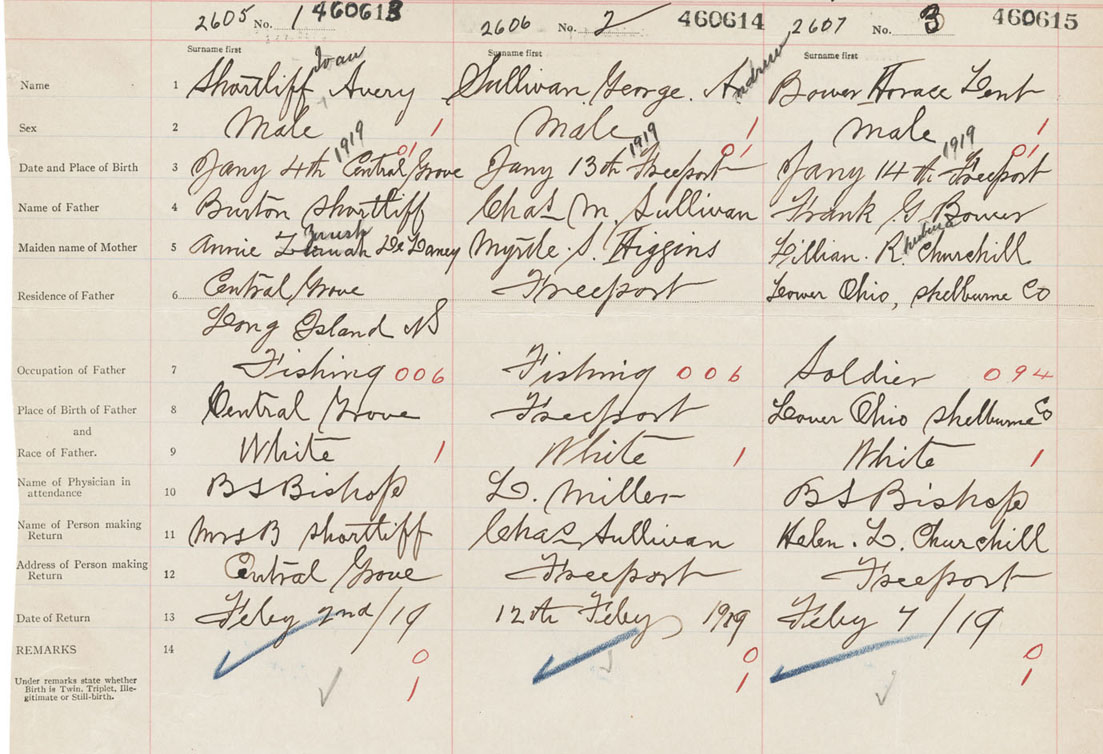 2605 No. 1 460613 2606 No. 2 460614 2607 No. 3 460615
Surname first Surname first Surname first
Ivan Andrew
Name 1 Shortliff Avery Sullivan George. A Bower Horace Lent
Sex 2 Male 1 Male 1 Male 1
1919 01 1919 01 1919 01
Date and Place of Birth 3 Jany 4th Central Grove Jany 13th Freeport Jany 14th Freeport
Name of Father 4 Burton Shortliff Chas M. Sullivan Frank G Bower
Maiden name of Mother 5 Annie De Laney Myrtle. S. Higgins Lillian. R. Churchill
Residence of Father 6 Central Grove Freeport Lower Ohio, Shelburne Co
Long Island NS
Occupation of Father 7 Fishing 006 Fishing 006 Soldier 094
Place of Birth of Father 8 Central Grove Freeport Lower Ohio Shelburne Co
and
Race of Father. 9 White 1 White 1 White 1
Name of Physician in
attendance 10 BS Bishop L. Miller BS Bishop
Name of Person making
Return 11 Mrs B Shortliff Chas Sullivan Helen. L. Churchill
Address of Person making
Return 12 Central Grove Freeport Freeport
Date of Return 13 Feby 2nd/19 12th Feby 1919 Feby 7/19
REMARKS 14 0 0 0
Under remarks state whether 1 1 1
Birth is Twin, Triplet, Ille-
gitimate or Still-birth.